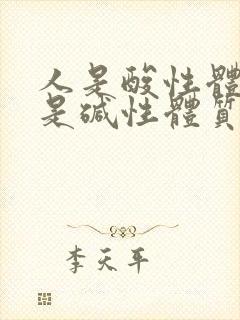 人是酸性體
是碱性體質
李天平